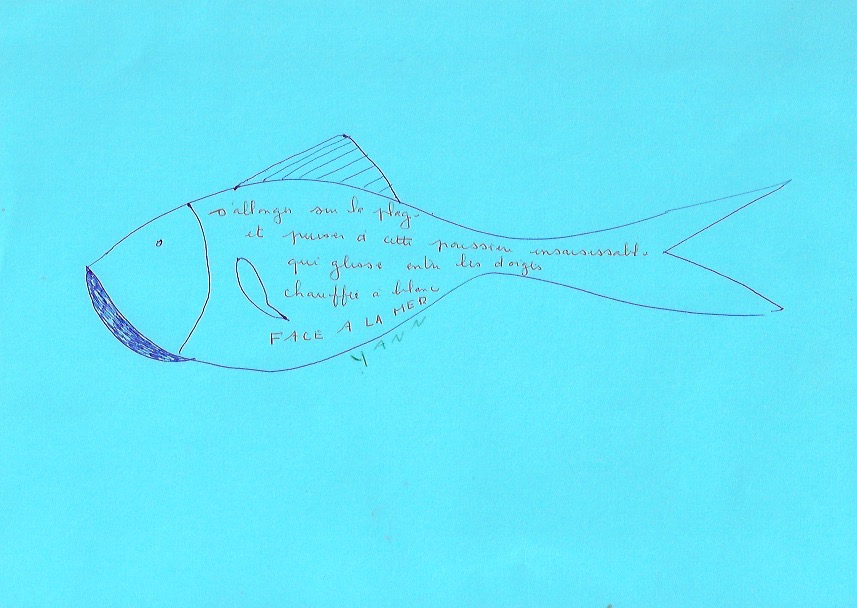 s'allonger sur la plage
et penser à cette poussière insaisissable
qui glisse entre les doigts
chauffée à blanc
FACE A LA MER
YANN